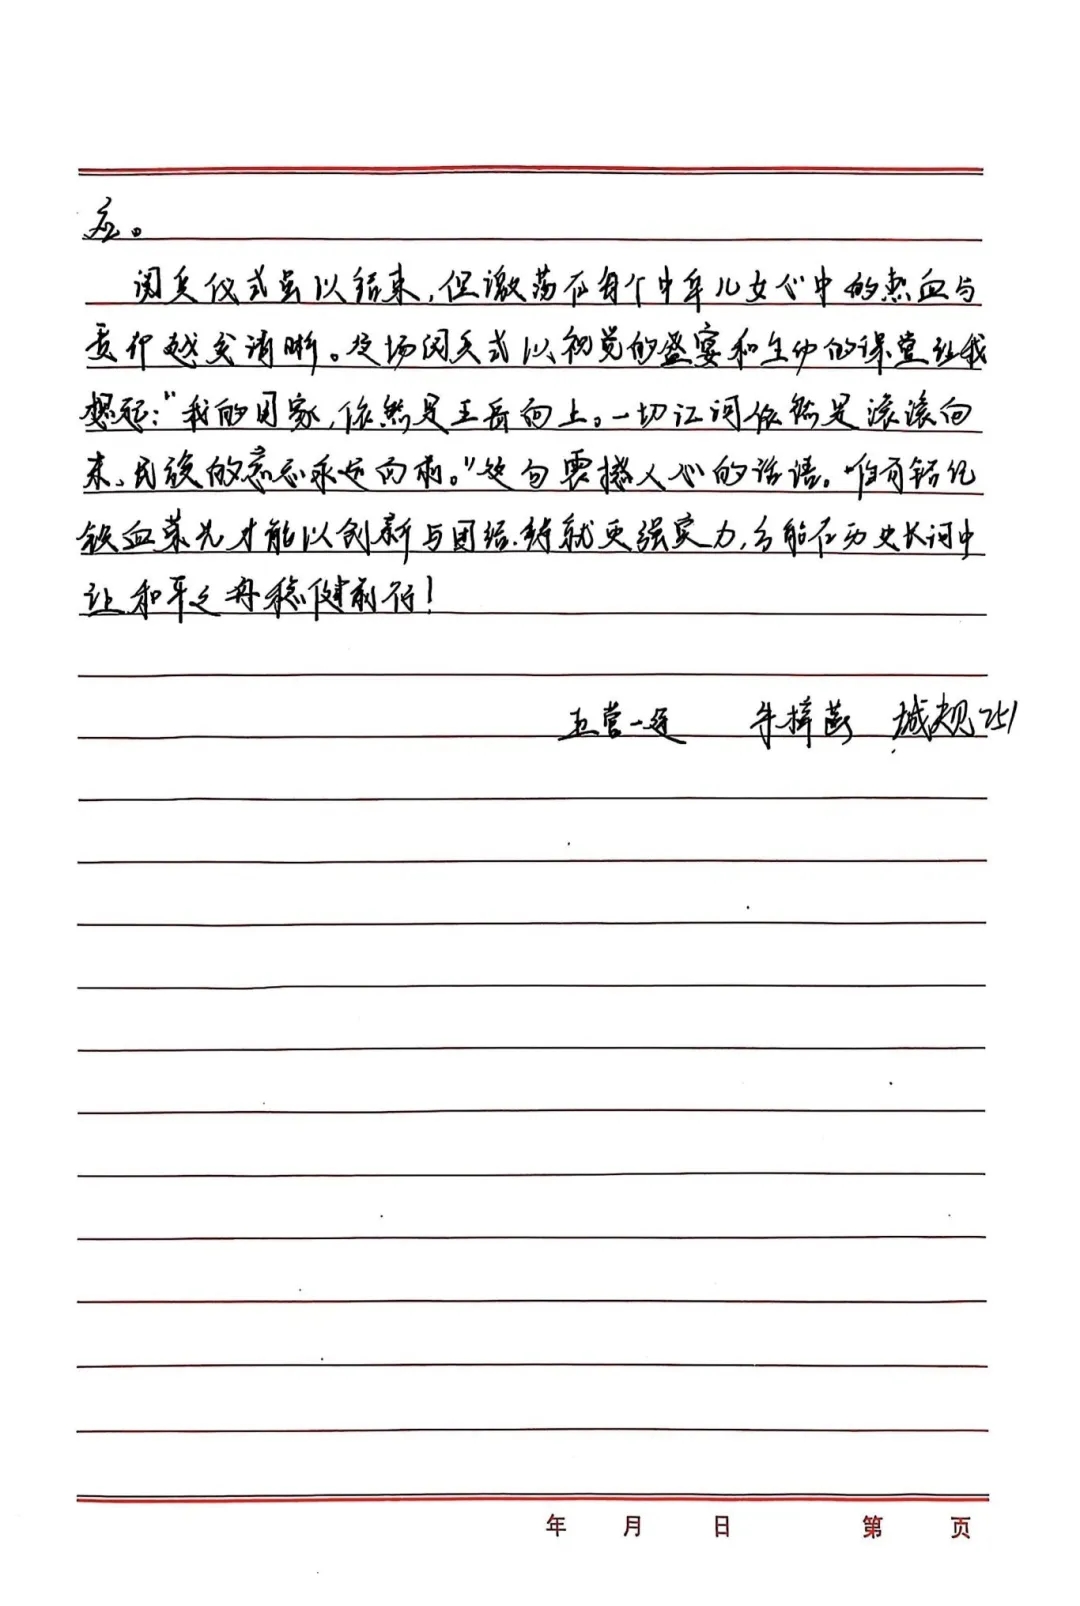 应。
阅兵仪式虽以结束,但激荡在每个中华儿女心中的热血与
责任越发清晰。这场阅兵式以视觉的盛宴和生动的课堂让我
想起:“我的国家,依然是五岳向上。一切江河依然是滚滚向
东,民族的意志永远向前。”这句震撼人心的话语。唯有铭记
铁血荣光才能以创新与团结,铸就更强实力,方能在历史长河中
让和平之舟稳健前行!
五营一连 朱梓 城规251
年 月 日 第 页